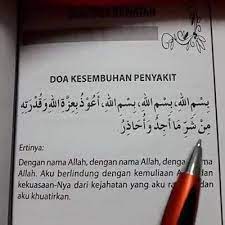 DOA KESEMBUHAN PENYAKIT
بِسْمِ اللهِ، بِسْمِ اللهِ، بِسْمِ اللهِ، أَعُوْذُ بِعِزَّةِ اللهِ وَقُدْرَتِهِ
مِنْ شَرِّ مَا أَجِدُ وَأُحَاذِرُ
Ertinya:
Dengan nama Allah, dengan nama Allah, dengan nama
Allah. Aku berlindung dengan kemuliaan dan
kekuasaan-Nya dari kejahatan yang aku dan
aku khuatirkan.